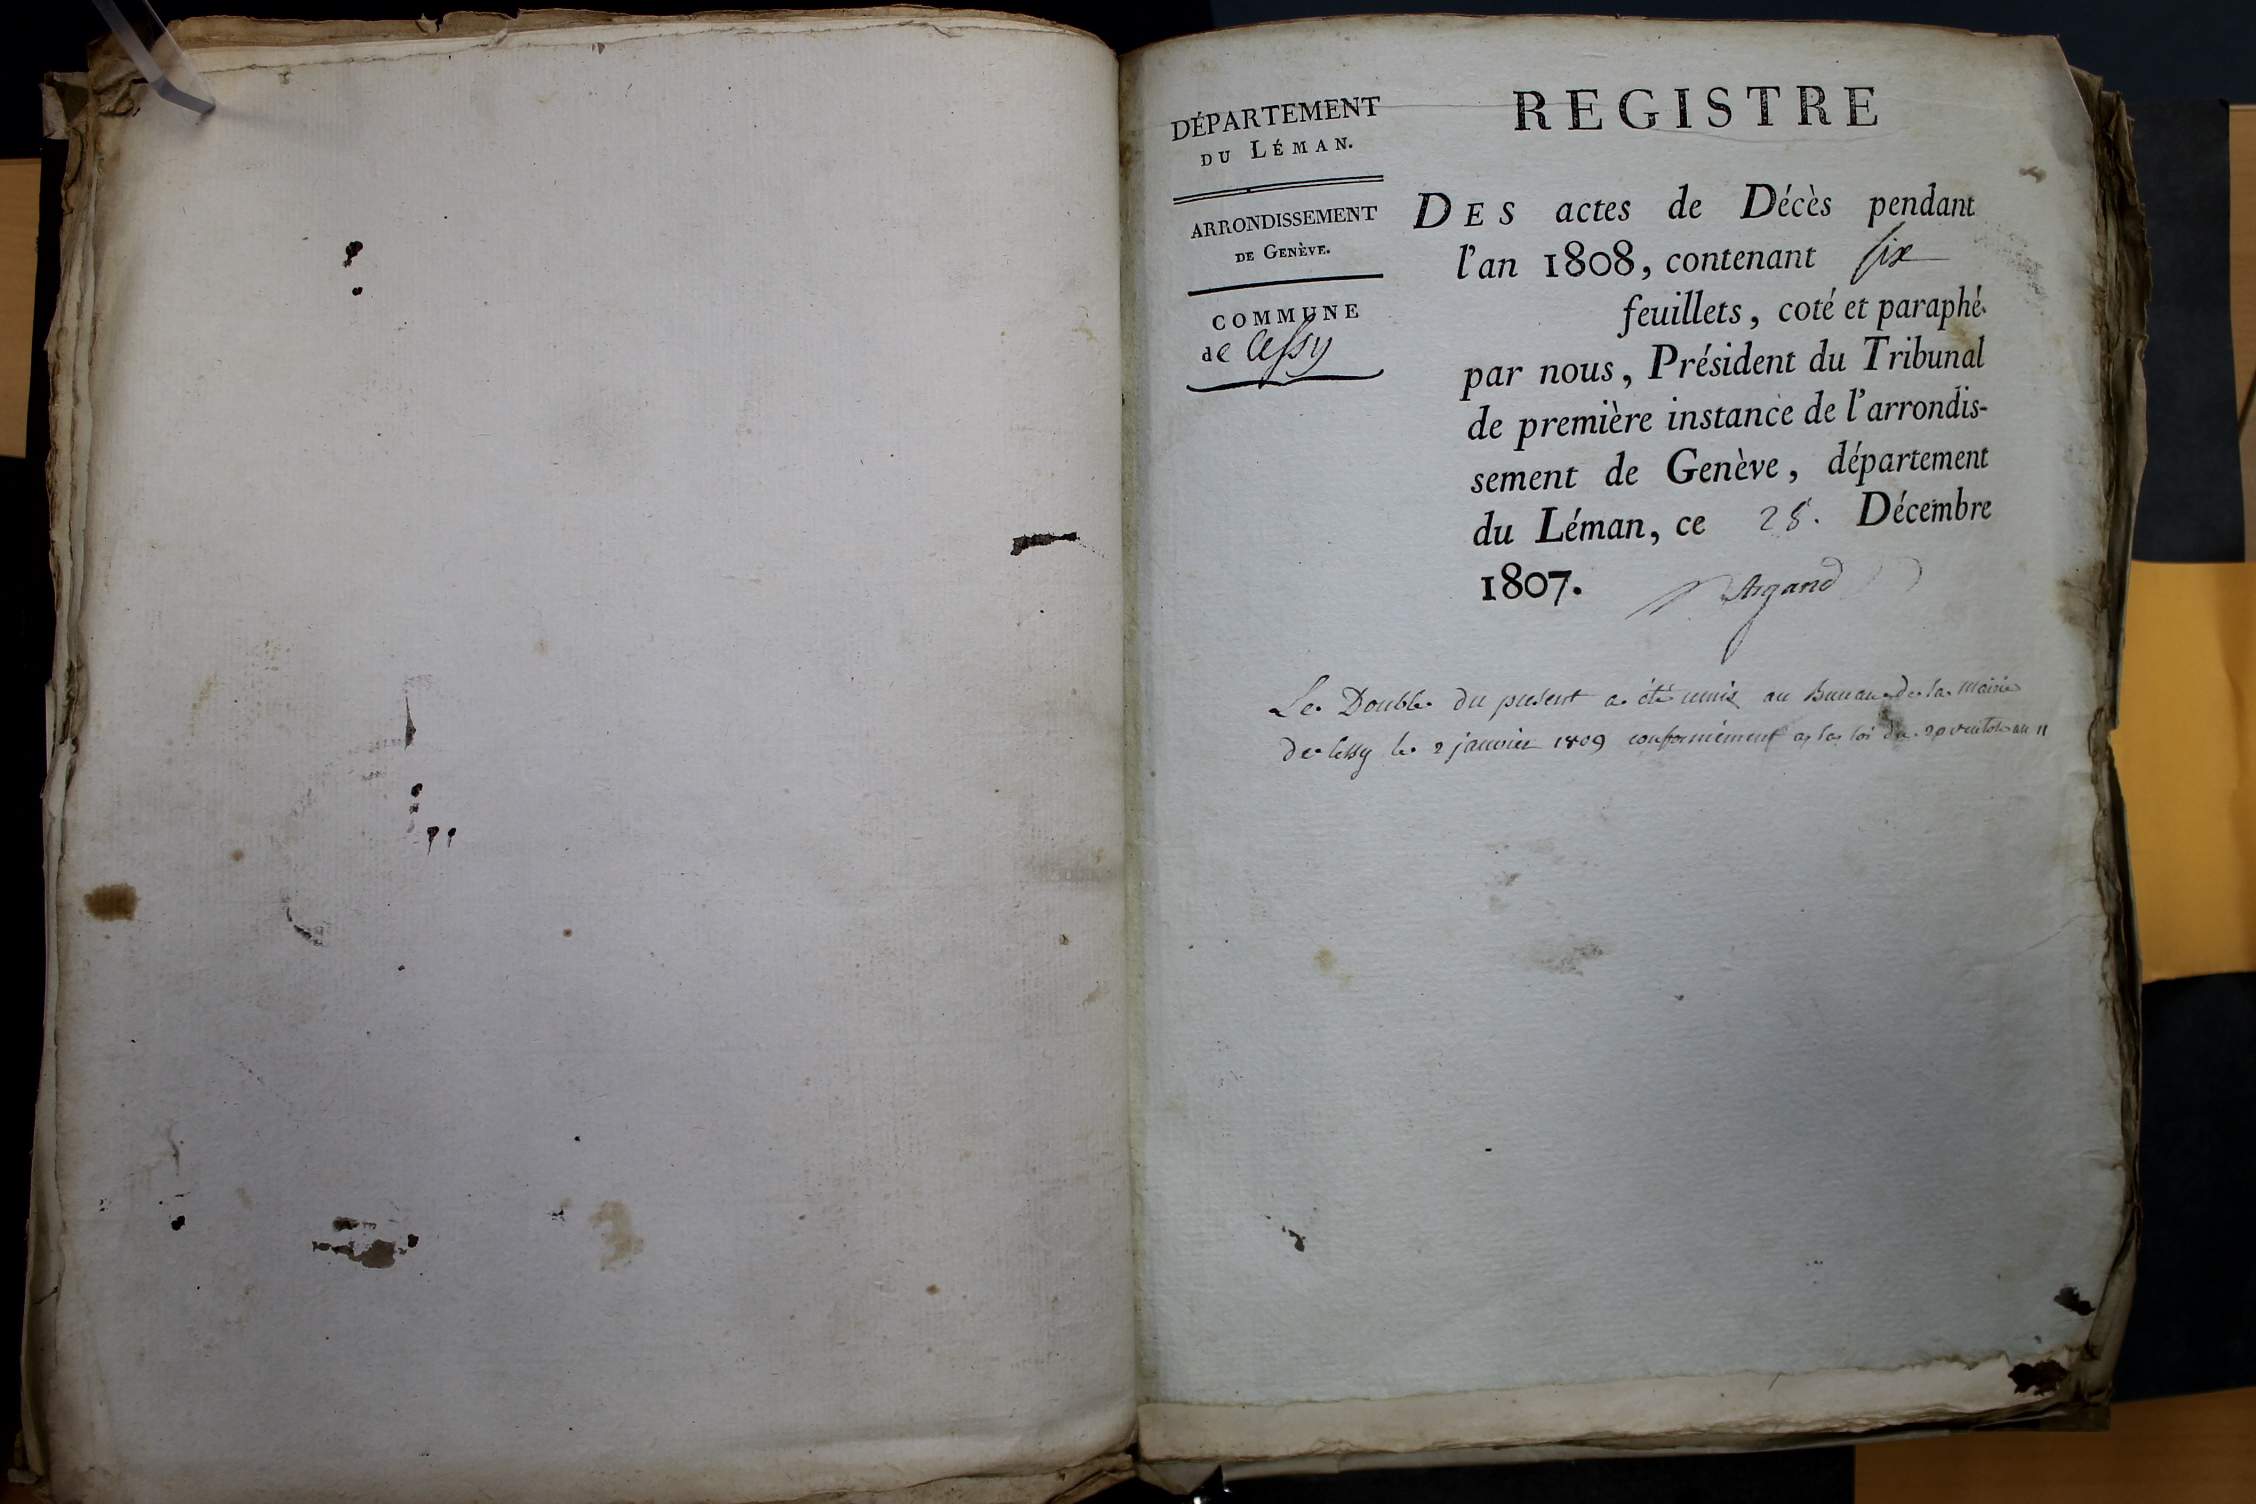 DÉPARTEMENT
DU LÉMAN.
ARRONDISSEMENT
DE GENÈVE.
COMMUNE
de Cessy
REGISTRE
DES actes de Décès pendant
l'an 1808, contenant six
feuillets, coté et paraphé
par nous, Président du Tribunal
de première instance de l'arrondis-
sement de Genève, département
du Léman, ce 28. Décembre
1807. Argand
Le Double du present a été remis au Bureau de la Mairie
de Cessy le 2 janvier 1809 conformément a la loi du 20 ventose an 11